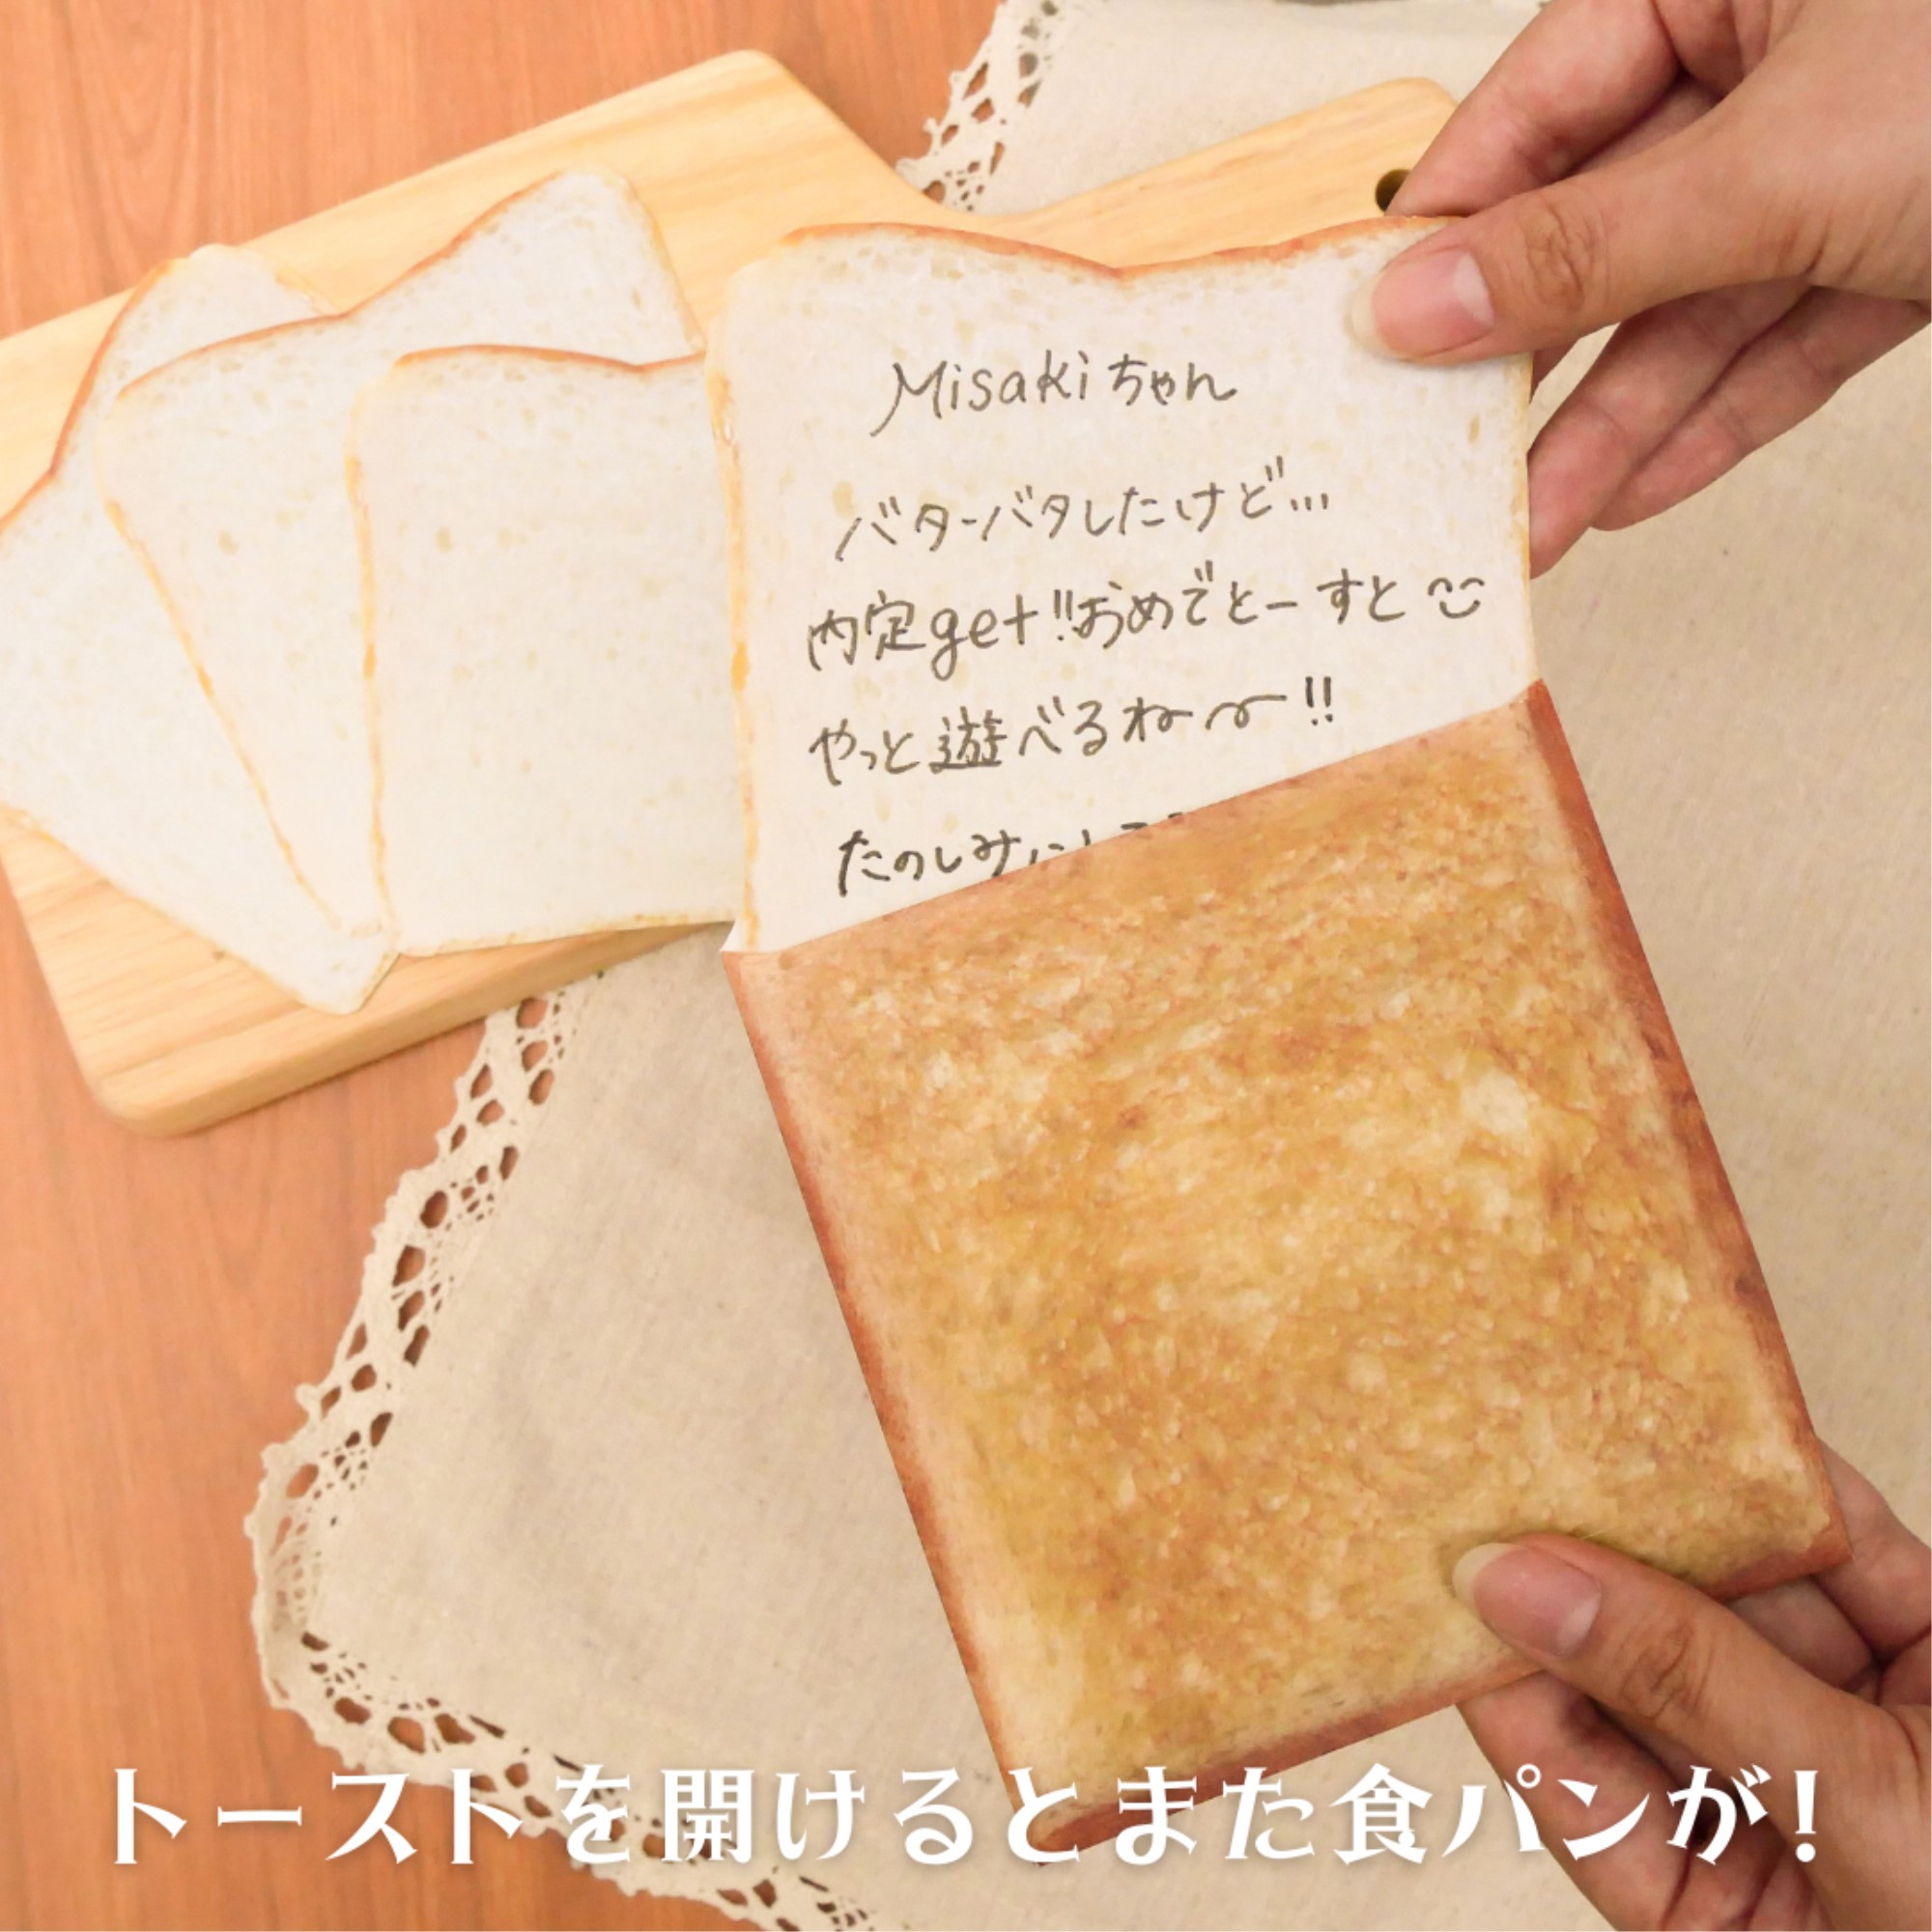 Misakiちゃん
バターバタしたけど...
内定get!!おめでとーすと
やっと遊べるね〜!!
たのしみに
トーストを開けるとまた食パンが!